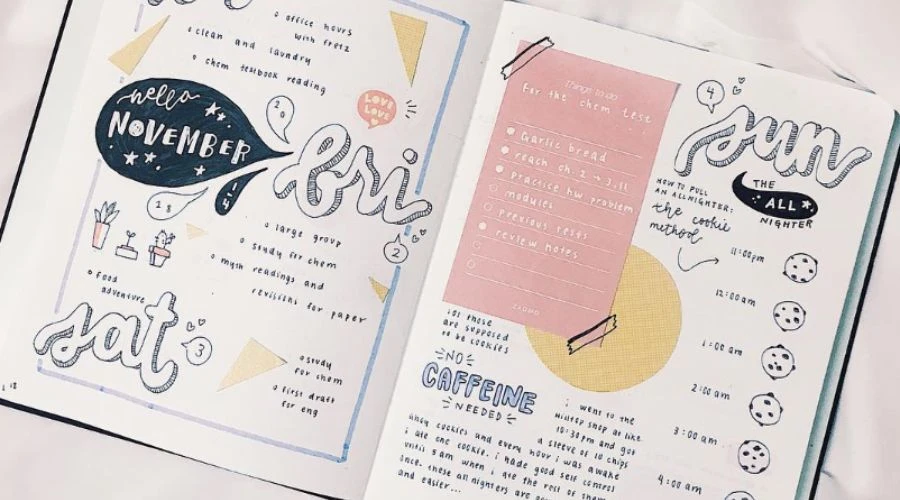 office hours
with fretz
clean and laundry
chem textbook reading
hello
NOVEMBER
20
LOVE
LOVE
fri
14
18
2
large group
study for chem
myth readings and
revisions for paper
food
adventure
sat
3
study
for chem
first draft
for eng
things to do
For the chem test
Garlic bread
reach ch. 2 → 3.11
practice hw problem
modules
previous tests
review notes
4
sun
HOW TO PULL
AN ALLNIGHTER:
the cookie
method
THE
ALL
NIGHTER
11:00pm
12:00am
1:00 am
2:00 am
3:00 am
4:00 am
lol those
are supposed
to be cookies
NO
CAFFEINE
NEEDED
i went to the
hilltop shop at like
10:30pm and got
a sleeve of 10 chips
ahoy cookies and every hour i was awake
i ate one cookie. i had good self control
until 5am when i ate the rest of them
once. these allnighters are
and easier...